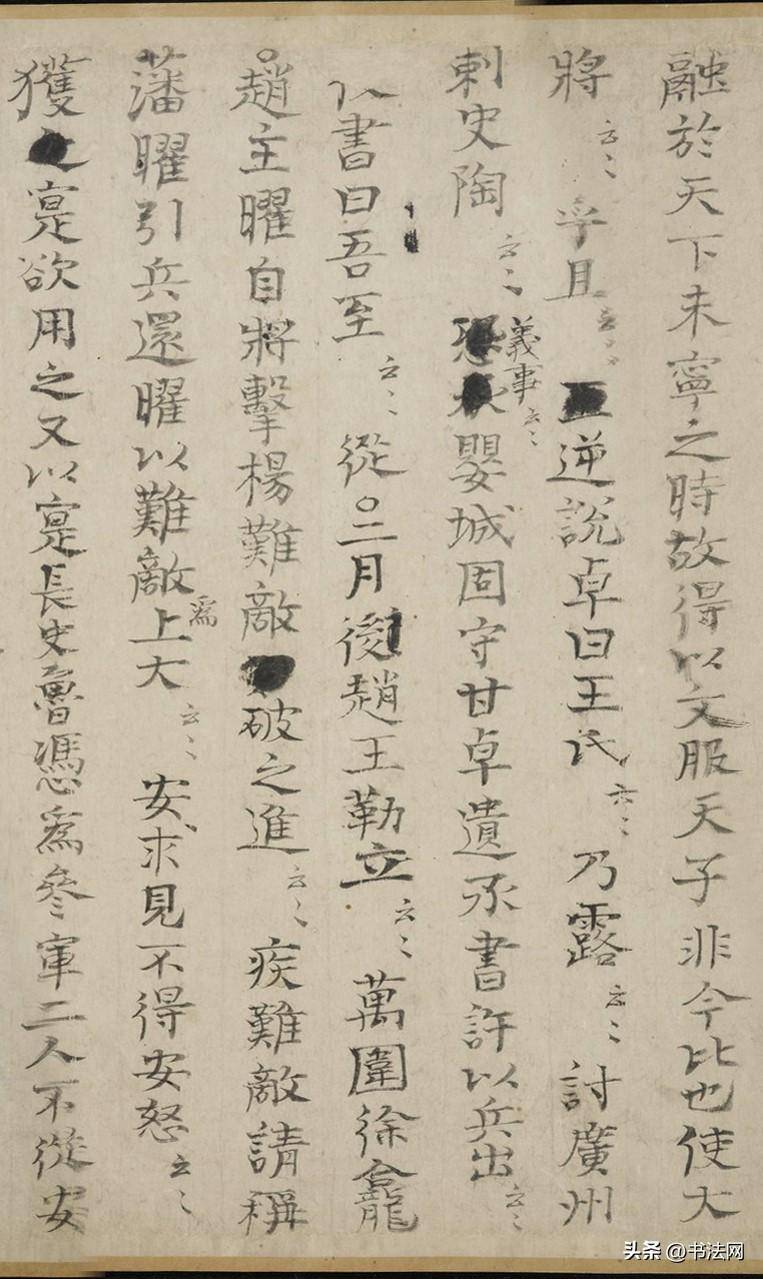 融於天下未寧之時故得以文服天子非今比也使大
將云々乎且云々逆說卓曰王氏云々乃露云々討廣州
刺史陶云々義事云々嬰城固守甘卓遺承書許以兵出云々
以書曰吾至云々從○二月後趙王勒立云々萬圍徐龕
○趙主曜自將擊楊難敵破之進云々疾難敵請稱
藩曜引兵還曜以難敵為上大云々安求見不得安怒云々
獲之寔欲用之又以寔長史魯馮為參軍二人不從安
头条 @书法网